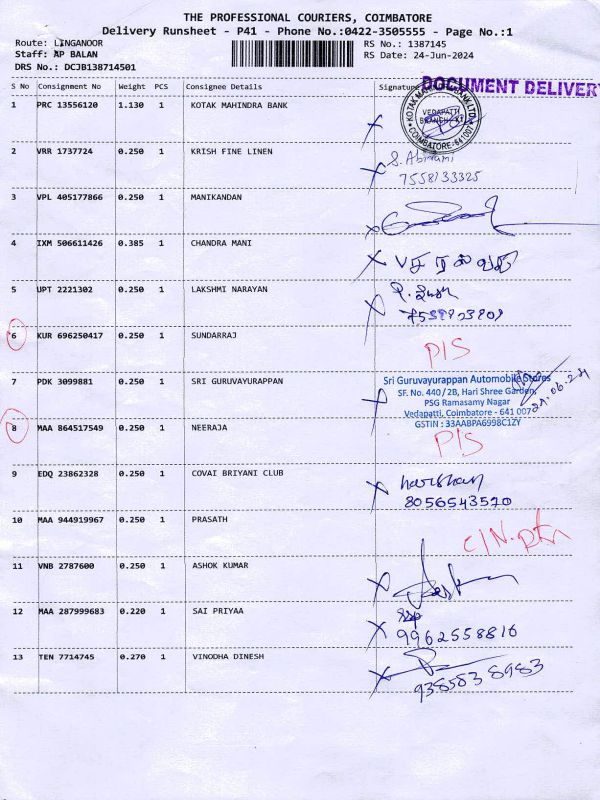 THE PROFESSIONAL COURIERS, COIMBATORE
Delivery Runsheet - P41 - Phone No.:0422-3505555 - Page No.:1
Route: LINGANOOR RS No.: 1387145
Staff: AP BALAN RS Date: 24-Jun-2024
DRS No.: DCJB138714501
DOCUMENT DELIVERY
S No Consignment No Weight PCS Consignee Details Signature
1 PRC 13556120 1.130 1 KOTAK MAHINDRA BANK
KOTAK MAHINDRA BANK LTD.
VEDAPATTI
BRANCH
COIMBATORE-641 007
2 VRR 1737724 0.250 1 KRISH FINE LINEN
S. Abirami
7558133325
3 VPL 405177866 0.250 1 MANIKANDAN
4 IXM 506611426 0.385 1 CHANDRA MANI
5 UPT 2221302 0.250 1 LAKSHMI NARAYAN
6 KUR 696250417 0.250 1 SUNDARRAJ
P/S
7 PDK 3099881 0.250 1 SRI GURUVAYURAPPAN
Sri Guruvayurappan Automobile Stores
SF. No. 440/2B, Hari Shree Garden,
PSG Ramasamy Nagar
Vedapatti, Coimbatore - 641 007
GSTIN : 33AABPA6998C1ZY
8 MAA 864517549 0.250 1 NEERAJA
P/S
9 EDQ 23862328 0.250 1 COVAI BRIYANI CLUB
harishan
8056543520
10 MAA 944919967 0.250 1 PRASATH
11 VNB 2787600 0.250 1 ASHOK KUMAR
12 MAA 287999683 0.220 1 SAI PRIYAA
SSP
9962558816
13 TEN 7714745 0.270 1 VINODHA DINESH
938583 8983